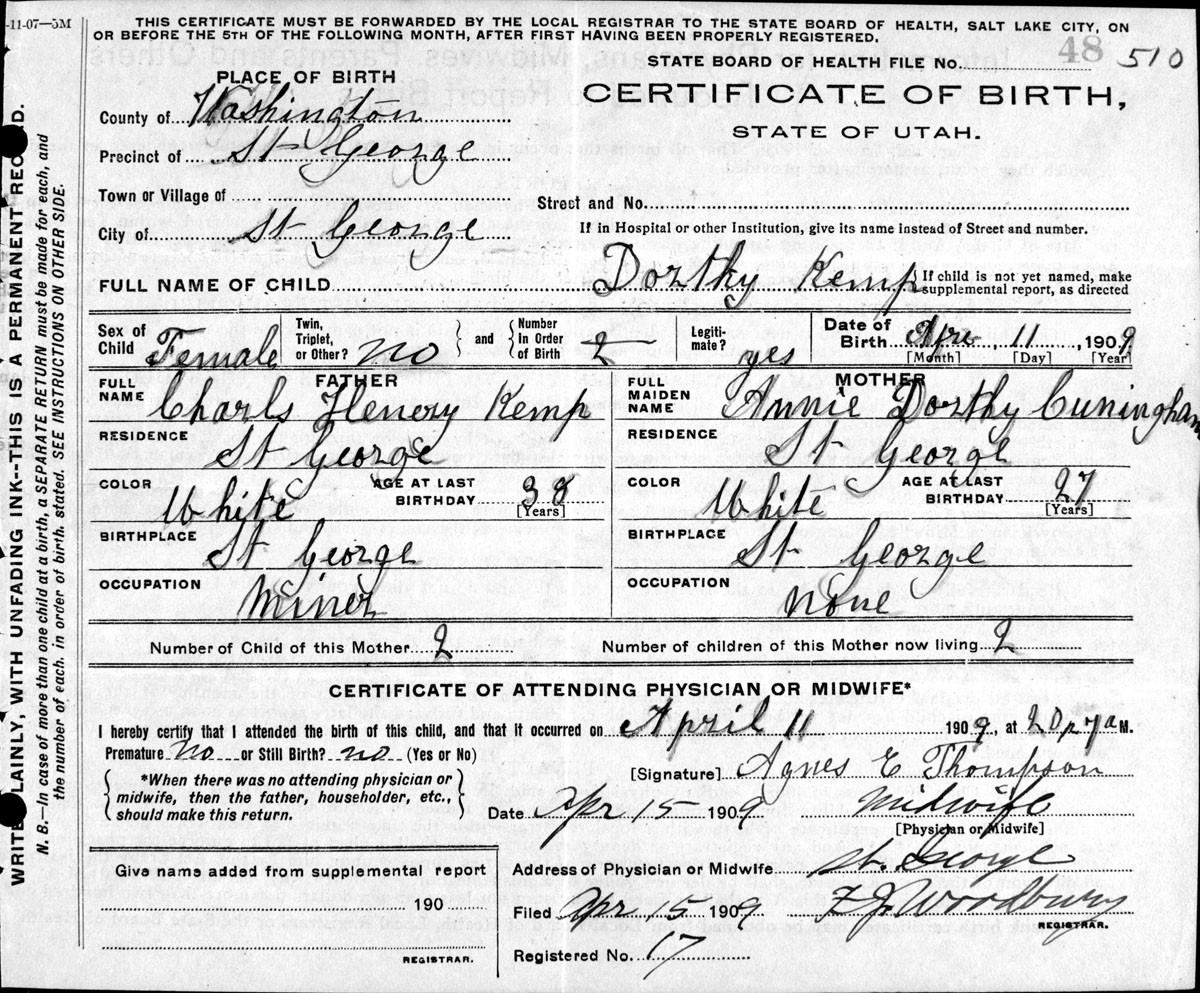 -11-07—5M
THIS CERTIFICATE MUST BE FORWARDED BY THE LOCAL REGISTRAR TO THE STATE BOARD OF HEALTH, SALT LAKE CITY, ON
OR BEFORE THE 5TH OF THE FOLLOWING MONTH, AFTER FIRST HAVING BEEN PROPERLY REGISTERED.
STATE BOARD OF HEALTH FILE No. 48 510
PLACE OF BIRTH
CERTIFICATE OF BIRTH,
STATE OF UTAH.
County of Washington
Precinct of St George
Town or Village of
Street and No.
City of St George
If in Hospital or other Institution, give its name instead of Street and number.
FULL NAME OF CHILD Dorthy Kemp
If child is not yet named, make
supplemental report, as directed
Sex of Child Female
Twin, Triplet, or Other? no
and Number In Order of Birth 2
Legiti-mate? yes
Date of Birth Apr 11, 1909
[Month] [Day] [Year]
FATHER
FULL NAME Charls Henery Kemp
RESIDENCE St George
COLOR White
AGE AT LAST BIRTHDAY 38
[Years]
BIRTHPLACE St George
OCCUPATION Miner
MOTHER
FULL MAIDEN NAME Annie Dorthy Cuningham
RESIDENCE St George
COLOR White
AGE AT LAST BIRTHDAY 27
[Years]
BIRTHPLACE St George
OCCUPATION None
Number of Child of this Mother 2
Number of children of this Mother now living 2
CERTIFICATE OF ATTENDING PHYSICIAN OR MIDWIFE*
I hereby certify that I attended the birth of this child, and that it occurred on April 11 1909, at M.
Premature no or Still Birth? no (Yes or No)
*When there was no attending physician or
midwife, then the father, householder, etc.,
should make this return.
[Signature] Agnes E Thompson
Date Apr 15 1909 Midwife
[Physician or Midwife]
Give name added from supplemental report
190
REGISTRAR.
Address of Physician or Midwife St. George
Filed Apr 15 1909 F J Woodbury
REGISTRAR.
Registered No. 17
WRITE PLAINLY, WITH UNFADING INK--THIS IS A PERMANENT RECORD.
N. B.—In case of more than one child at a birth, a SEPARATE RETURN must be made for each, and
the number of each, in order of birth, stated. SEE INSTRUCTIONS ON OTHER SIDE.